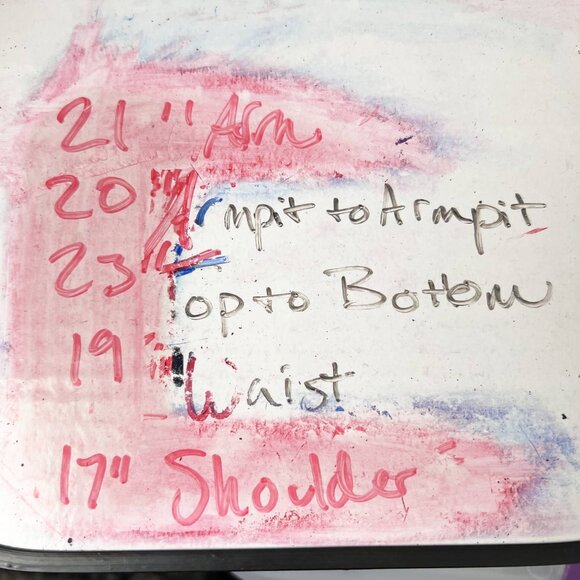 21" Arm
20" Armpit to Armpit
23" Top to Bottom
19" Waist
17" Shoulder